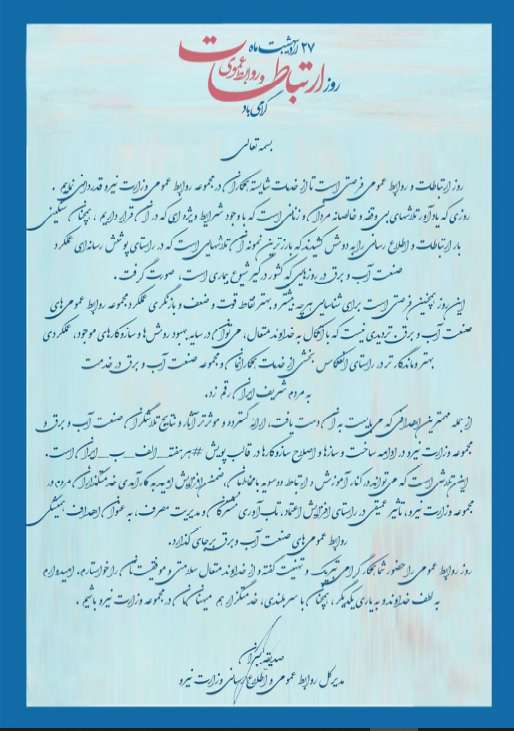 ۲۷ اردیبهشت ماه
روز ارتباطات
و روابط عمومی
گرامی باد
بسمه تعالی
روز ارتباطات و روابط عمومی فرصتی است تا از خدمات شایسته همکاران در مجموعه روابط عمومی وزارت نیرو قدردانی نمایم .
روزی که یادآور تلاشهای بی وقفه و خالصانه مردان و زنانی است که با وجود شرایط ویژه ای که در آن قرار داریم ، همچنان سنگینی
بار ارتباطات و اطلاع رسانی را به دوش کشیدند که بارزترین نمونه این تلاشهایی است که در راستای پوشش رسانه ای عملکرد
صنعت آب و برق در روزهایی که کشور درگیر شیوع بیماری است، صورت گرفت.
این روز همچنین فرصتی است برای شناسایی هرچه بیشتر و بهتر نقاط قوت و ضعف و بازنگری عملکرد مجموعه روابط عمومی های
صنعت آب و برق و تردیدی نیست که با اتکال به خداوند متعال، می توان در سایه بهبود روش ها و سازوکارهای موجود، عملکردی
بهتر و ماندگارتر در راستای انعکاس بخشی از خدمات همکارانمان و مجموعه صنعت آب و برق در خدمت
به مردم شریف ایران رقم زد.
از جمله مهمترین اهدافی که می بایست به آن دست یافت، ارایه گسترده و موثرتر آثار و نتایج تلاشگران صنعت آب و برق و
مجموعه وزارت نیرو در ادامه ساخت و سازها و اصلاح سازوکارها در قالب پویش #هرهفته_الف_ب_ایران است.
این تلاشی است که می تواند در کنار آموزش و ارتباط دوسویه با مخاطبان، ضمن افزایش امید به کارآمدی خدمتگذاران مردم در
مجموعه وزارت نیرو، تأثیر عمیقی در راستای افزایش اعتماد، تاب آوری مشترکان و مدیریت مصرف، به عنوان اهداف همیشگی
روابط عمومی های صنعت آب و برق برجای گذارد.
روز روابط عمومی را حضور شما همکار گرامی تبریک و تهنیت گفته و از خداوند متعال سلامتی و موفقیت تان را خواستارم. امیدوارم
به لطف خداوند و به یاری یکدیگر، همچنان با سربلندی، خدمتگزار هم میهنان مان در مجموعه وزارت نیرو باشیم .
صدیقه ببران
مدیرکل روابط عمومی و اطلاع رسانی وزارت نیرو